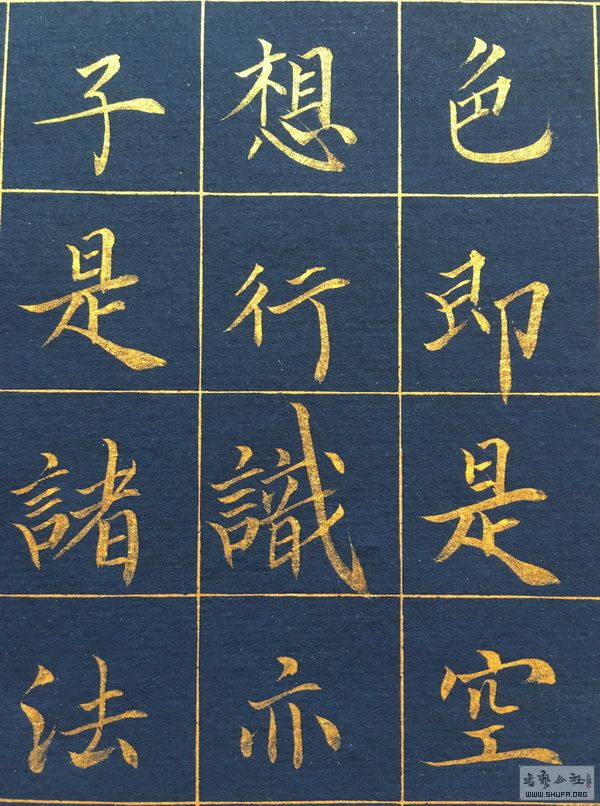 色即是空
想行識亦
子是諸法
WWW.SHUFA.ORG